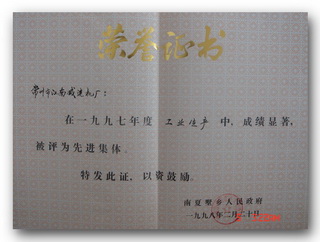 荣誉证书
常州市江南减速机厂：
在一九九七年度 工业生产 中，成绩显著，
被评为先进集体。
特发此证，以资鼓励。
南夏墅乡人民政府
一九九八年二月二十日